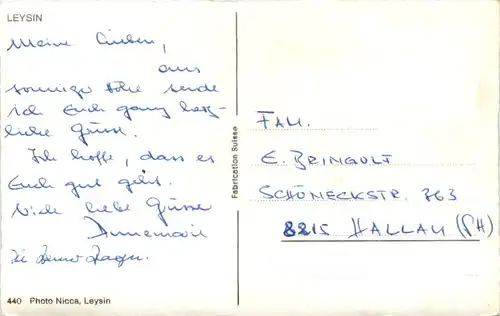 LEYSIN
Meine Lieben,
aus
sonniger Höhe sende
ich Euch ganz herz-
liche Grüsse.
Ich hoffe, dass es
Euch gut geht.
Viele liebe Grüsse
Annemarie
Fabrication Suisse
FAM.
E. BRINGOLF
SCHÖNECKSTR. 363
8215 HALLAU (SH)
440 Photo Nicca, Leysin